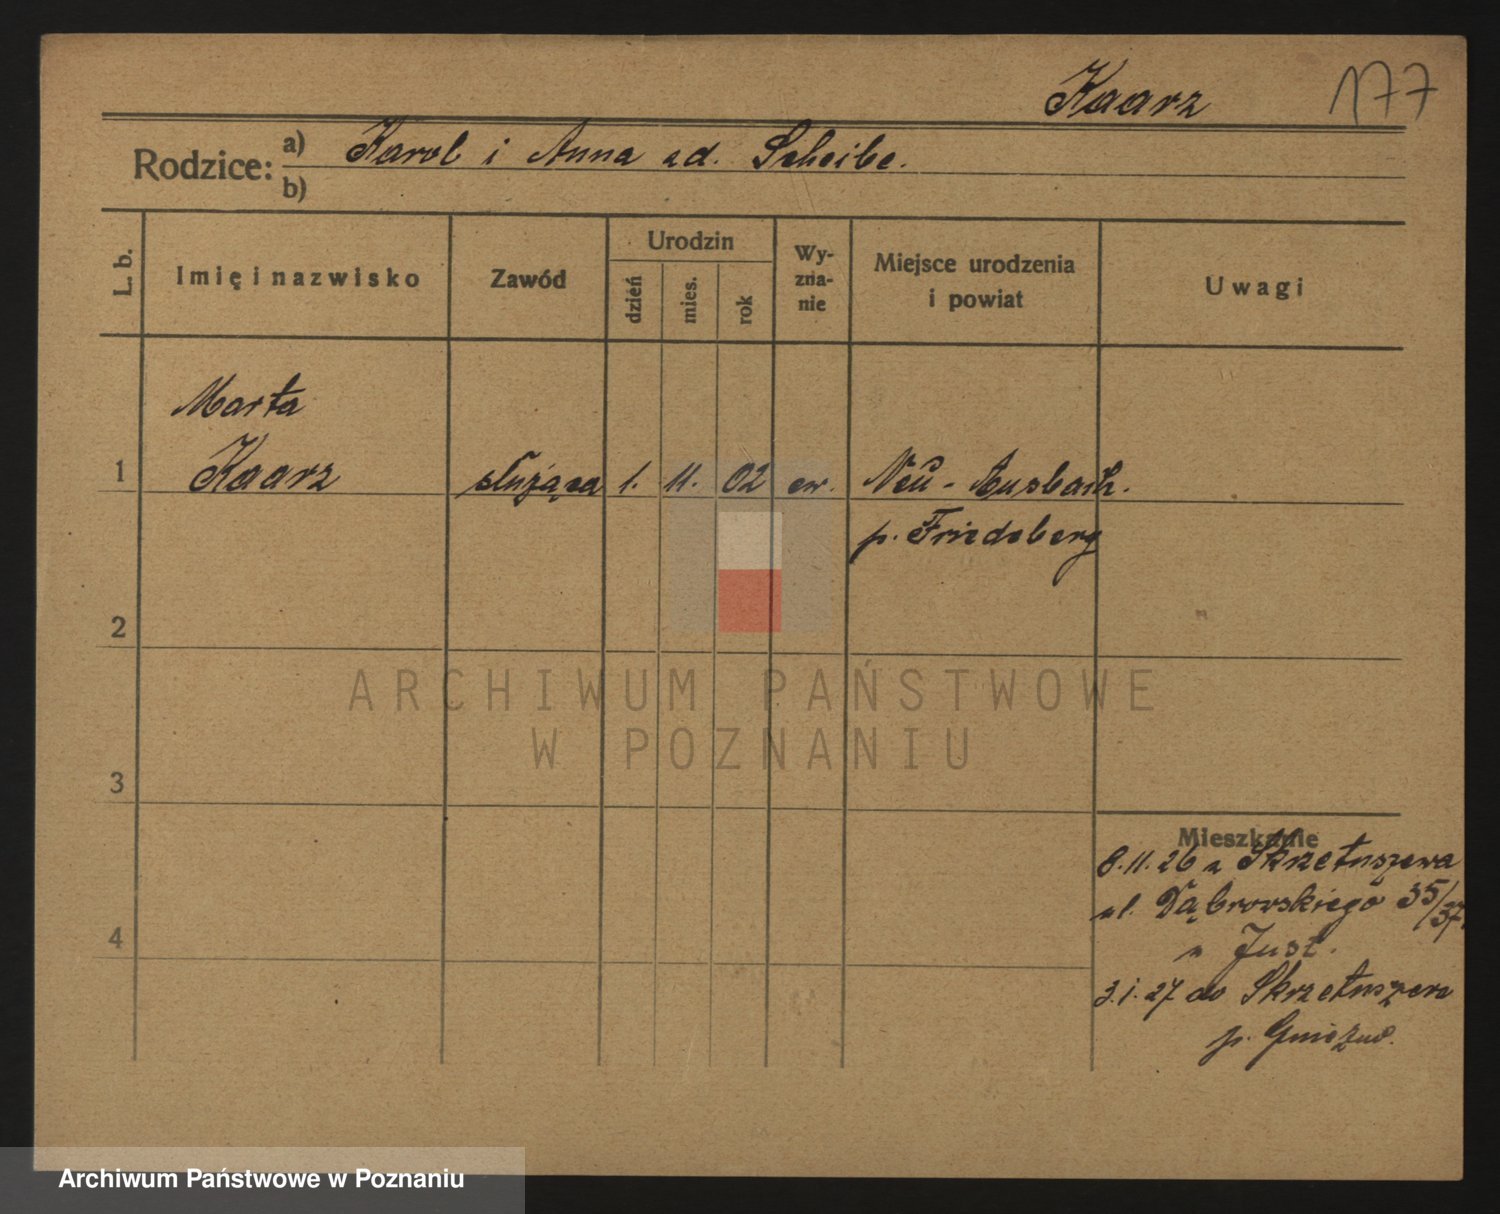 Kaarz 177
Rodzice: a) Karol i Anna zd. Scheibe.
b)
L. b.
Imię i nazwisko
Zawód
Urodzin
dzień
mies.
rok
Wy-
zna-
nie
Miejsce urodzenia
i powiat
Uwagi
Marta
1 Kaarz służąca 1. 11. 02 ew. Neu - Ausbach.
p. Friedeberg
2
ARCHIWUM PAŃSTWOWE
W POZNANIU
3
Mieszkanie
8.11.26 z Skrzetuszewa
ul. Dąbrowskiego 35/37
u Just.
4
3.1.27 do Skrzetuszewa
p. Gniezno.
Archiwum Państwowe w Poznaniu